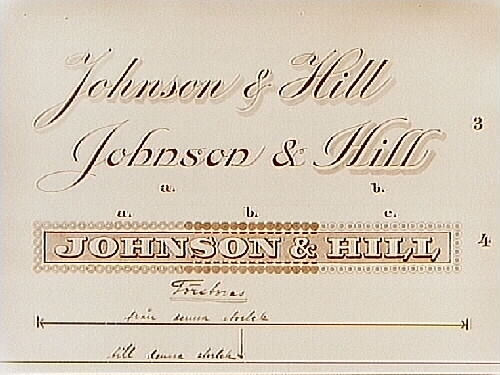 Johnson & Hill
3
Johnson & Hill
a. b.
a. b. c.
JOHNSON & HILL
4
Förstoras
från denna storlek
till denna storlek